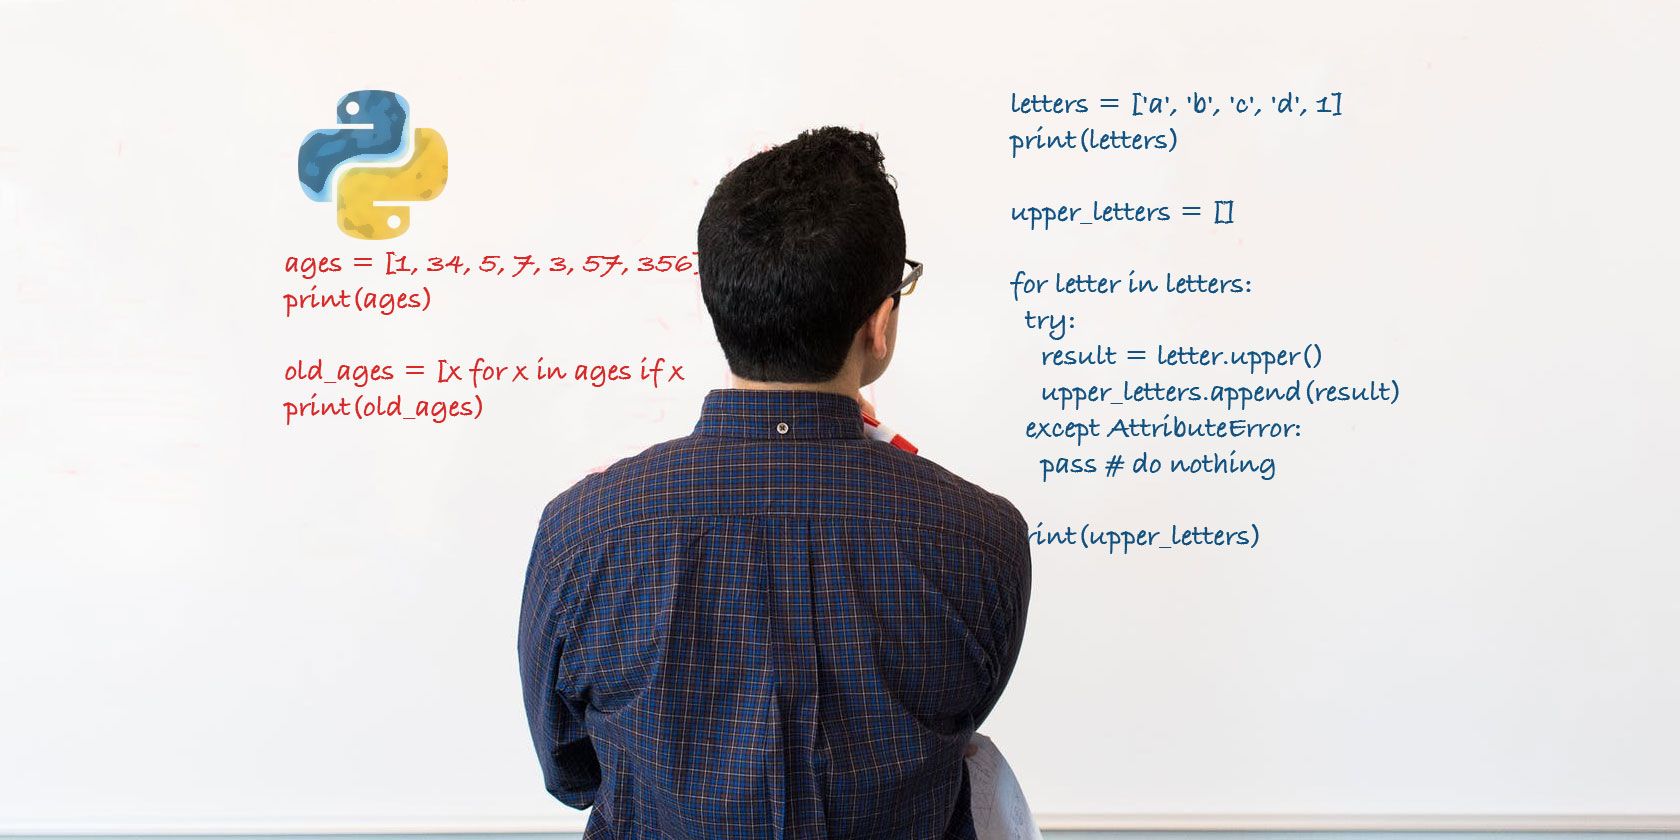 ages = [1, 34, 5, 7, 3, 57, 356]
print(ages)
old_ages = [x for x in ages if x
print(old_ages)
letters = ['a', 'b', 'c', 'd', 1]
print(letters)
upper_letters = []
for letter in letters:
try:
result = letter.upper()
upper_letters.append(result)
except AttributeError:
pass # do nothing
rint(upper_letters)